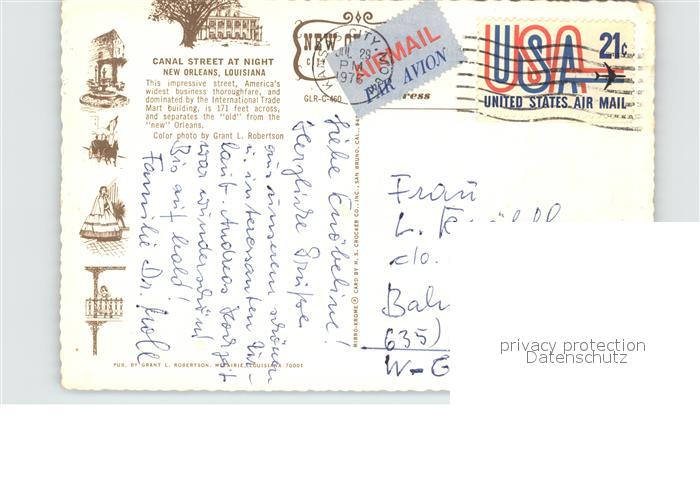 CANAL STREET AT NIGHT
NEW ORLEANS, LOUISIANA
This impressive street, America's
widest business thoroughfare, and
dominated by the International Trade
Mart building, is 171 feet across,
and separates the "old" from the
"new" Orleans.
Color photo by Grant L. Robertson
GLR-C-460
AIRMAIL
PAR AVION
USA 21c
UNITED STATES AIR MAIL
Liebe Knöbeline!
Herzliche Grüße
aus unserem schönen
u. interessanten
laut. Andreas Hochzeit
war wunderschön!
Bis auf bald!
Familie Dr. Moll
MIRRO-KROME ® CARD BY H. S. CROCKER CO., INC., SAN BRUNO, CAL.
Frau
L.
c/o.
635)
PUB. BY GRANT L. ROBERTSON, METAIRIE, LOUISIANA 70001
privacy protection
Datenschutz